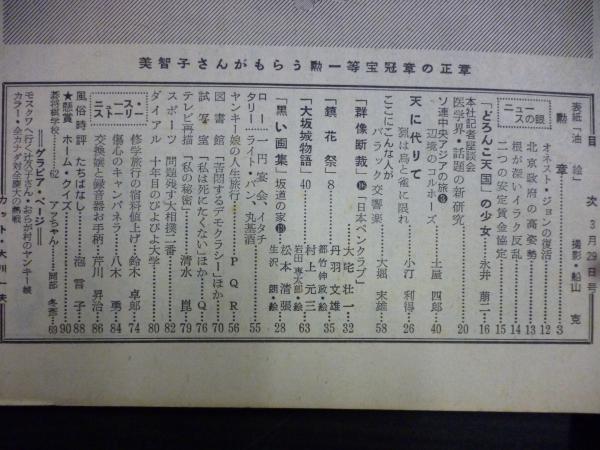 美智子さんがもらう勲一等宝冠章の正章
目次 3月29日号
表紙「油絵」 撮影・船山克
勲章 3
ニュースの眼
オネスト・ジョンの復活 12
北京政府の高姿勢 13
根が深いイラク反乱 14
二つの安定賃金協定 15
「どろんこ天国」の少女 永井萠二 16
本社記者座談会
医学界・話題の新研究 20
ソ連中央アジアの旅③
辺境のコルホーズ 土屋四郎 40
天に代りて 小汀利得 26
猟は烏と雀に限れ
ここにこんな人が
バラック交響楽 大堀末雄 58
「群像断裁」⑭「日本ペンクラブ」 大宅壮一 32
「鏡花祭」8 丹羽文雄 35
都竹伸政・絵
「大坂城物語」40 村上元三 63
岩田専太郎・絵
「黒い画集」坂道の家⑬ 松本清張 28
生沢朗・絵
ロータリー 一円宴会、イタチ
ライト・バン、丸基酒 55
ヤンキー娘の人生旅行 PQR 56
図書館 「苦悶するデモクラシー」ほか 70
試写室 「私は死にたくない」ほか Q 76
テレビ再描 「私の秘密」 清水崑 79
スポーツ 問題残す大相撲二番 82
ダイアル 十年目のぴよぴよ大学 80
ニュース・ストーリー
修学旅行の宿料値上げ 鈴木卓郎 74
傷心のキャンパネラ 八木勇 84
交換嬢と録音器お手柄 芹川昇治 86
風俗時評 たちばなし 泡言子 88
★懸賞 ホーム・クイズ 90
碁将棋学校 62 アァちゃん 岡部冬彦 69
グラビア・ページ
モスクワへ行く谷桃子さん・おらが村のヤンキー娘
カラー・全カナダ対全慶大の熱戦
カット・大川一夫